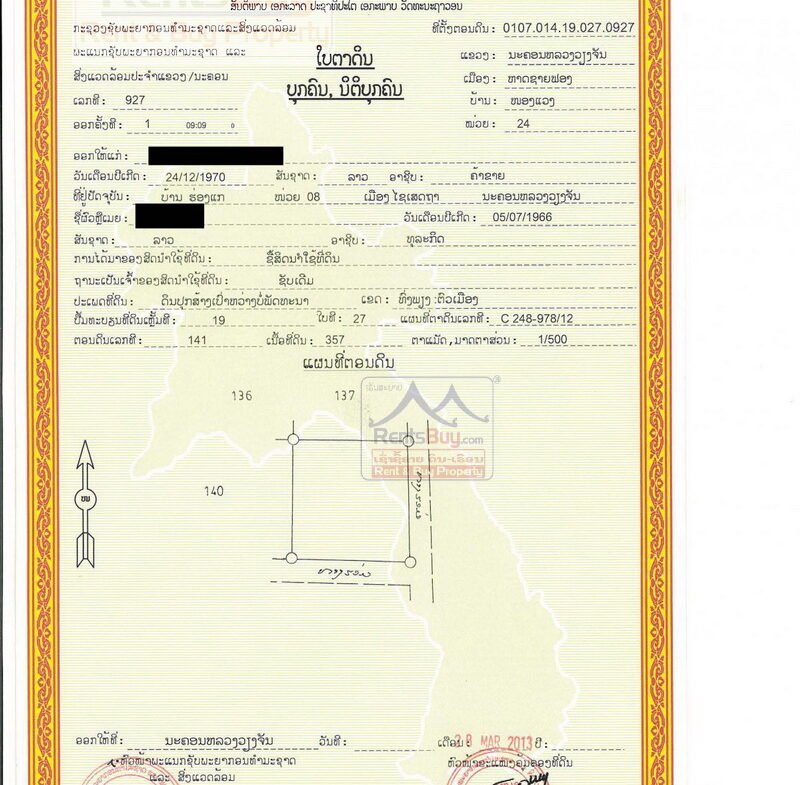 ສັນຕິພາບ ເອກະລາດ ປະຊາທິປະໄຕ ເອກະພາບ ວັດທະນະຖາວອນ
ກະຊວງຊັບພະຍາກອນທຳມະຊາດແລະສິ່ງແວດລ້ອມ
ທີ່ຕັ້ງຕອນດິນ : 0107.014.19.027.0927
ພະແນກຊັບພະຍາກອນທຳມະຊາດ ແລະ
ສິ່ງແວດລ້ອມປະຈຳແຂວງ /ນະຄອນ
ໃບຕາດິນ
ບຸກຄົນ, ນິຕິບຸກຄົນ
ແຂວງ : ນະຄອນຫລວງວຽງຈັນ
ເມືອງ : ຫາດຊາຍຟອງ
ບ້ານ : ໜອງແວງ
ໜ່ວຍ : 24
ເລກທີ : 927
ອອກຄັ້ງທີ : 1 09:09 0
ອອກໃຫ້ແກ່ :
ວັນເດືອນປີເກີດ : 24/12/1970 ສັນຊາດ : ລາວ ອາຊີບ : ຄ້າຂາຍ
ທີ່ຢູ່ປັດຈຸບັນ : ບ້ານ ຮ່ອງແກ ໜ່ວຍ 08 ເມືອງ ໄຊເສດຖາ ນະຄອນຫລວງວຽງຈັນ
ຊື່ຜົວຫຼືເມຍ : ວັນເດືອນປີເກີດ : 05/07/1966
ສັນຊາດ : ລາວ ອາຊີບ : ທຸລະກິດ
ການໄດ້ມາຂອງສິດນຳໃຊ້ທີ່ດິນ : ຊື້ສິດນຳໃຊ້ທີ່ດິນ
ຖານະເປັນເຈົ້າຂອງສິດນຳໃຊ້ທີ່ດິນ : ຊັບເດີມ
ປະເພດທີ່ດິນ : ດິນປຸກສ້າງເປົ່າຫວ່າງບໍ່ພັດທະນາ ເຂດ : ທົ່ງພຽງ :ຕົວເມືອງ
ປຶ້ມທະບຽນທີ່ດິນເຫຼັ້ມທີ : 19 ໃບທີ : 27 ແຜນທີ່ຕາດິນເລກທີ : C 248-978/12
ຕອນດິນເລກທີ : 141 ເນື້ອທີ່ດິນ : 357 ຕາແມັດ , ມາດຕາສ່ວນ : 1/500
ແຜນທີ່ຕອນດິນ
136 137
ເຮົາສະບາຍ
RentsBuy.com
ເຊົ່າຊື້ຂາຍ ດິນ-ເຮືອນ
Rent & Buy Property
140
ທາງຮ່ອມ
ທາງຮ່ອມ
ອອກໃຫ້ທີ່ : ນະຄອນຫລວງວຽງຈັນ ວັນທີ : ເດືອນ 28 MAR 2013 ປີ :
ຫົວໜ້າພະແນກຊັບພະຍາກອນທຳມະຊາດ
ແລະ ສິ່ງແວດລ້ອມ
ຫົວໜ້າຂະແໜງຄຸ້ມຄອງທີ່ດິນ